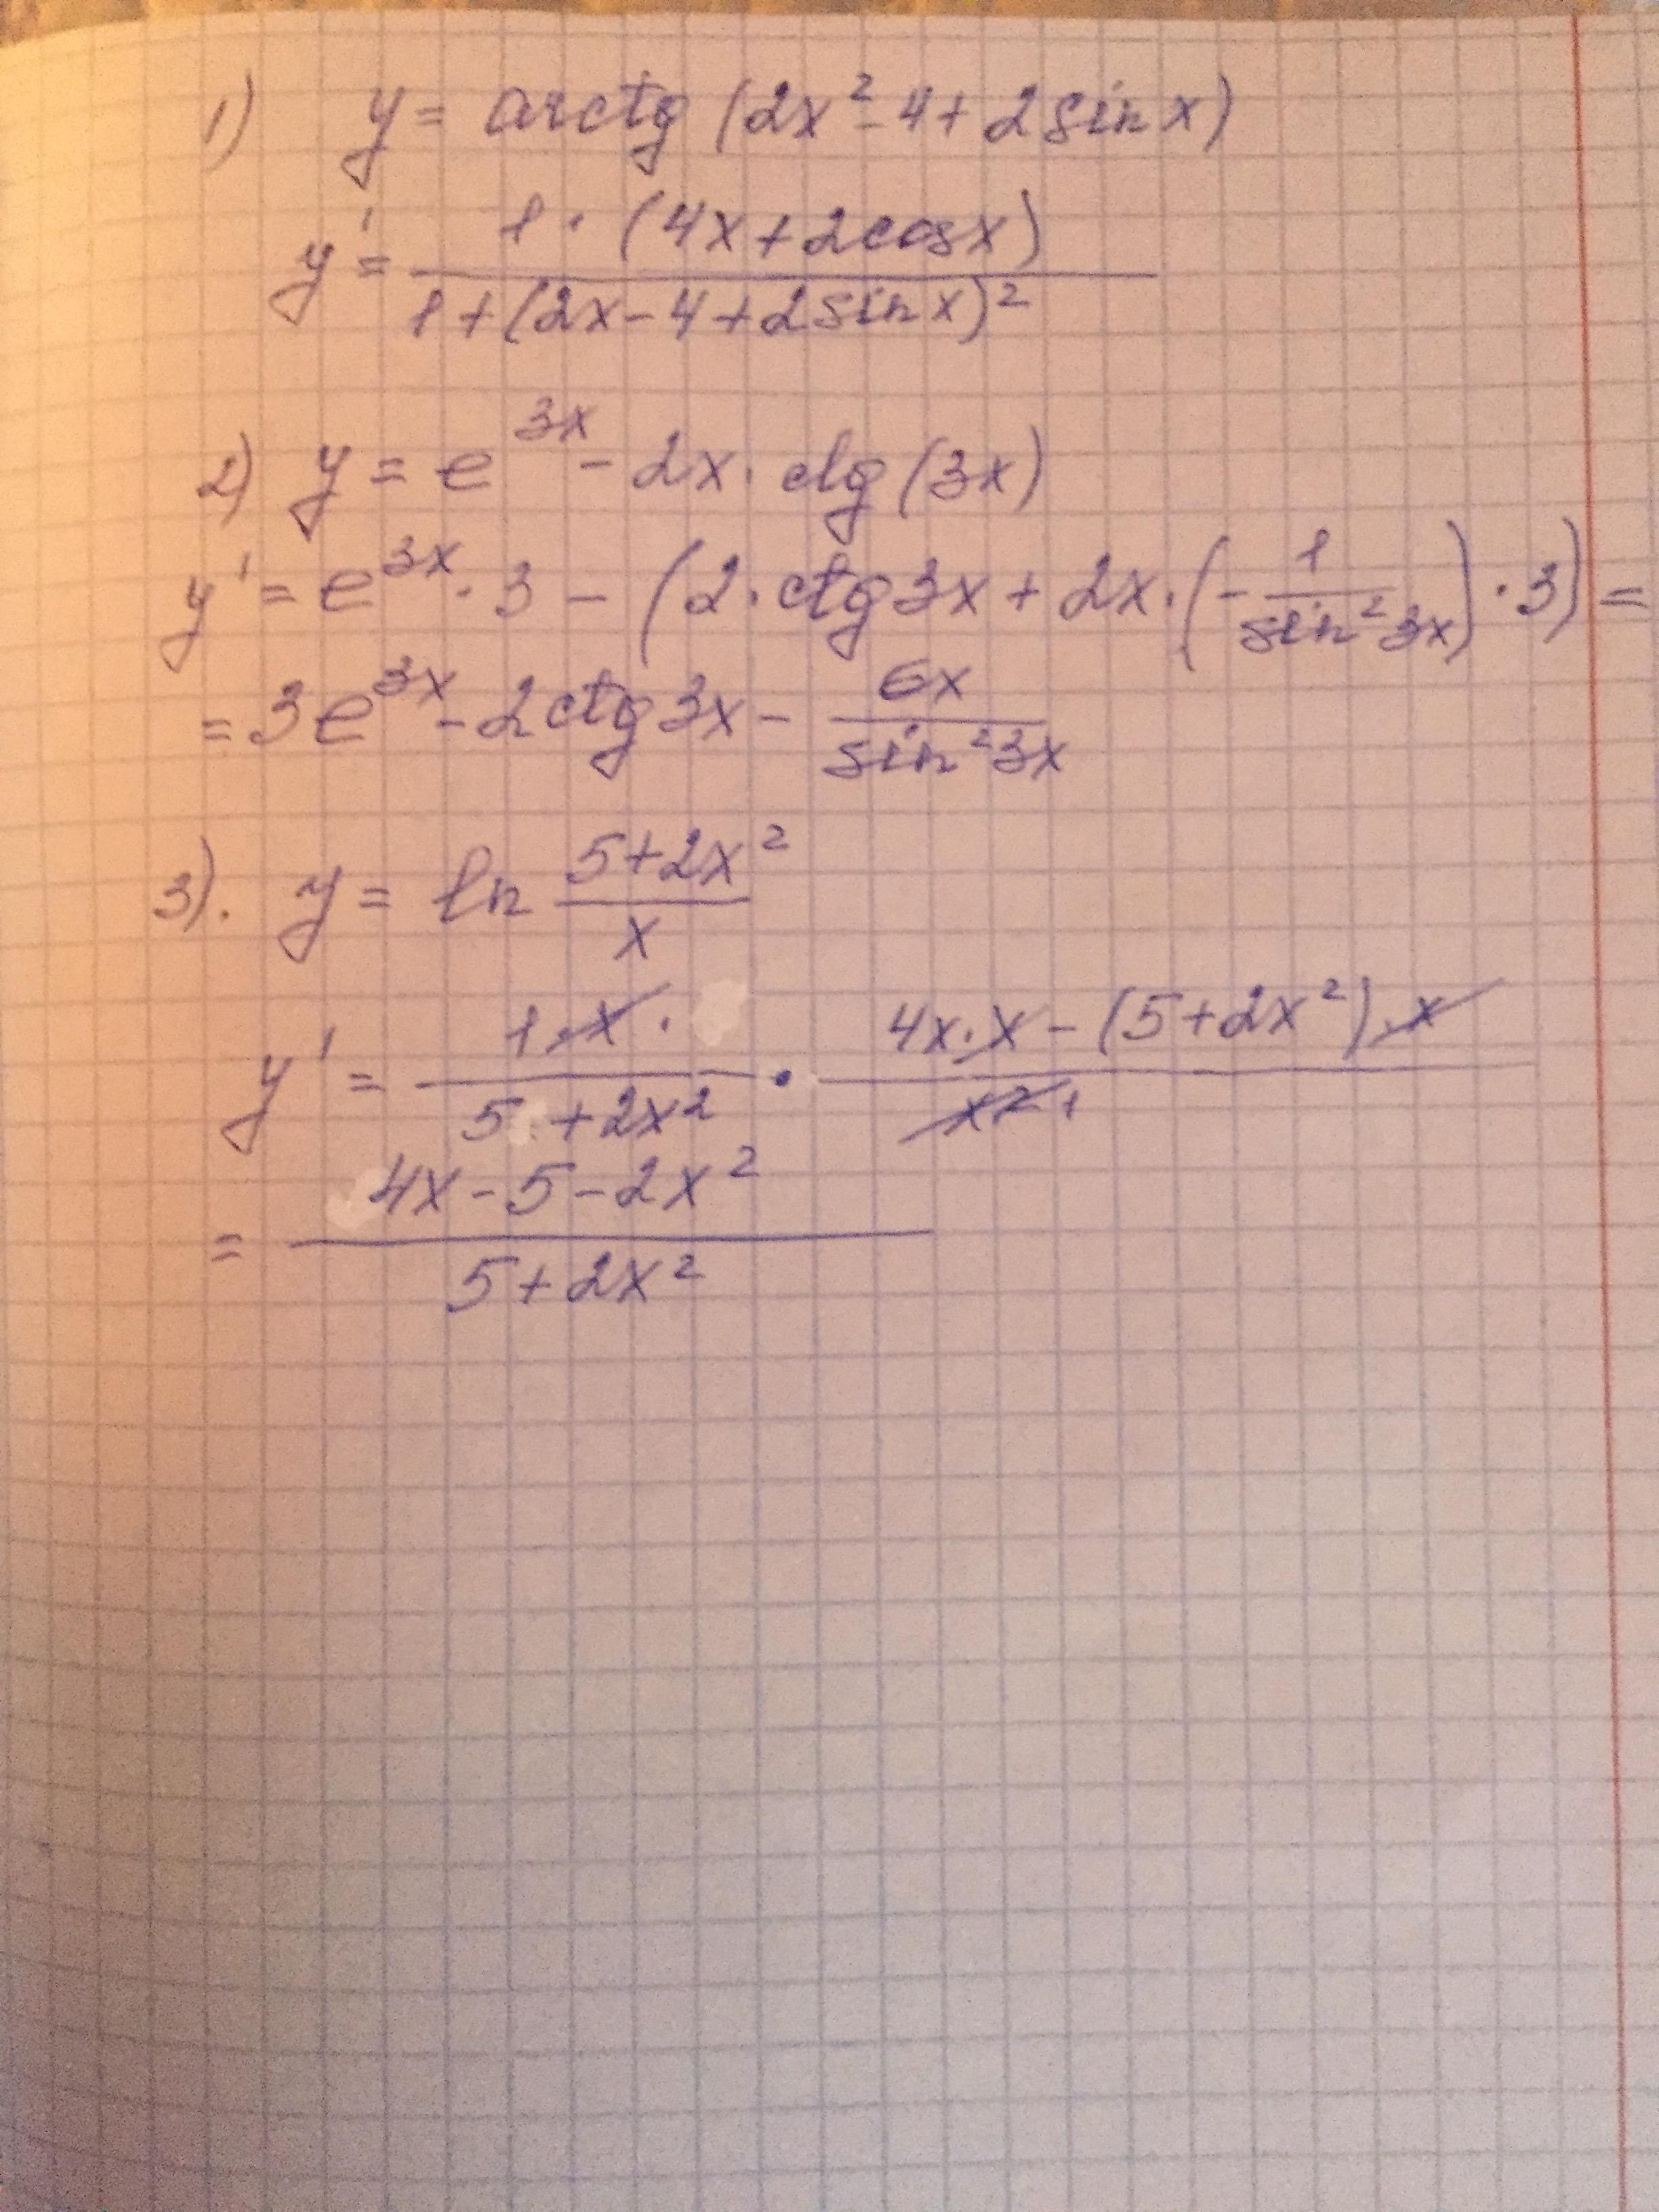 1) y = arctg (2x² - 4 + 2 sin x)
y' = (1 · (4x + 2cosx)) / (1 + (2x - 4 + 2 sin x)²)
2) y = e^(3x) - 2x · ctg (3x)
y' = e^(3x) · 3 - (2 · ctg 3x + 2x · (- 1 / (sin² 3x)) · 3) =
= 3e^(3x) - 2 ctg 3x - 6x / (sin² 3x)
3). y = ln (5 + 2x²) / x
y' = (1 · x ·) / (5 + 2x²) · (4x · x - (5 + 2x²) · x) / (x² 1)
= (4x - 5 - 2x²) / (5 + 2x²)